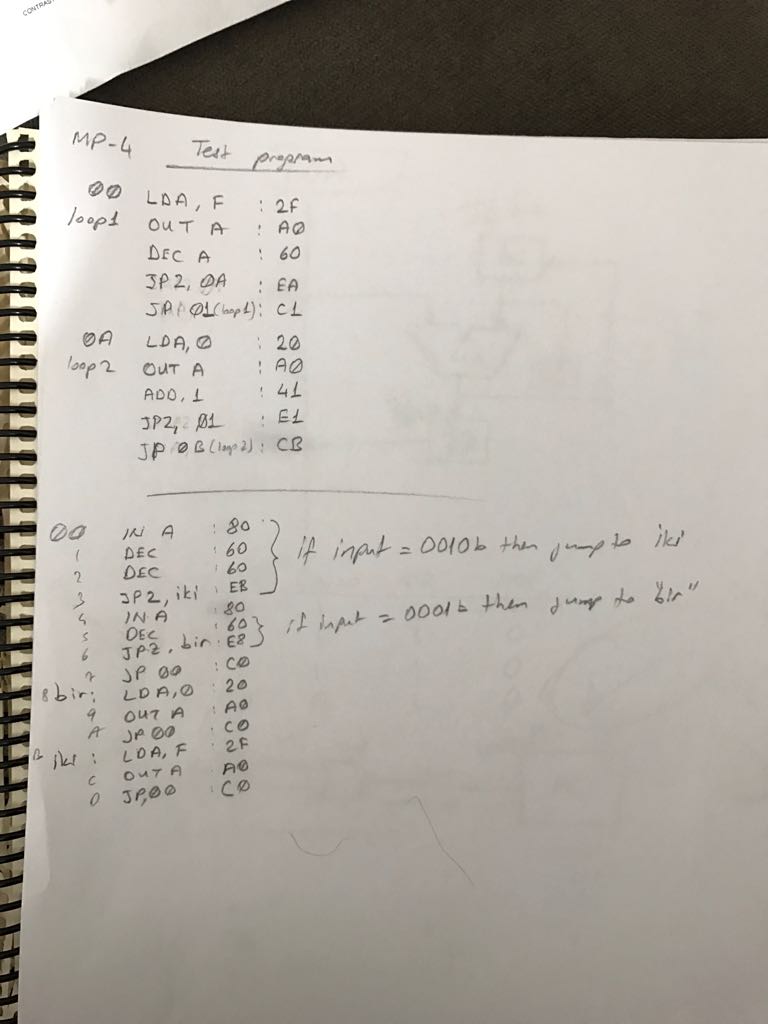 CONTRAS
MP-4 Test program
00 LDA, F : 2F
loop1 OUT A : A0
DEC A : 60
JPZ, 0A : EA
JP 01 (loop1) : C1
0A LDA, 0 : 20
loop2 OUT A : A0
ADD, 1 : 41
JPZ, 01 : E1
JP 0B (loop2) : CB
00 IN A : 80
1 DEC : 60 if input = 0010b then jump to iki
2 DEC : 60
3 JPZ, iki : EB
4 IN A : 80
5 DEC : 60 if input = 0001b then jump to "bir"
6 JPZ, bir : E8
7 JP 00 : C0
8 bir: LDA, 0 : 20
9 OUT A : A0
A JP 00 : C0
B iki : LDA, F : 2F
C OUT A : A0
D JP, 00 : C0